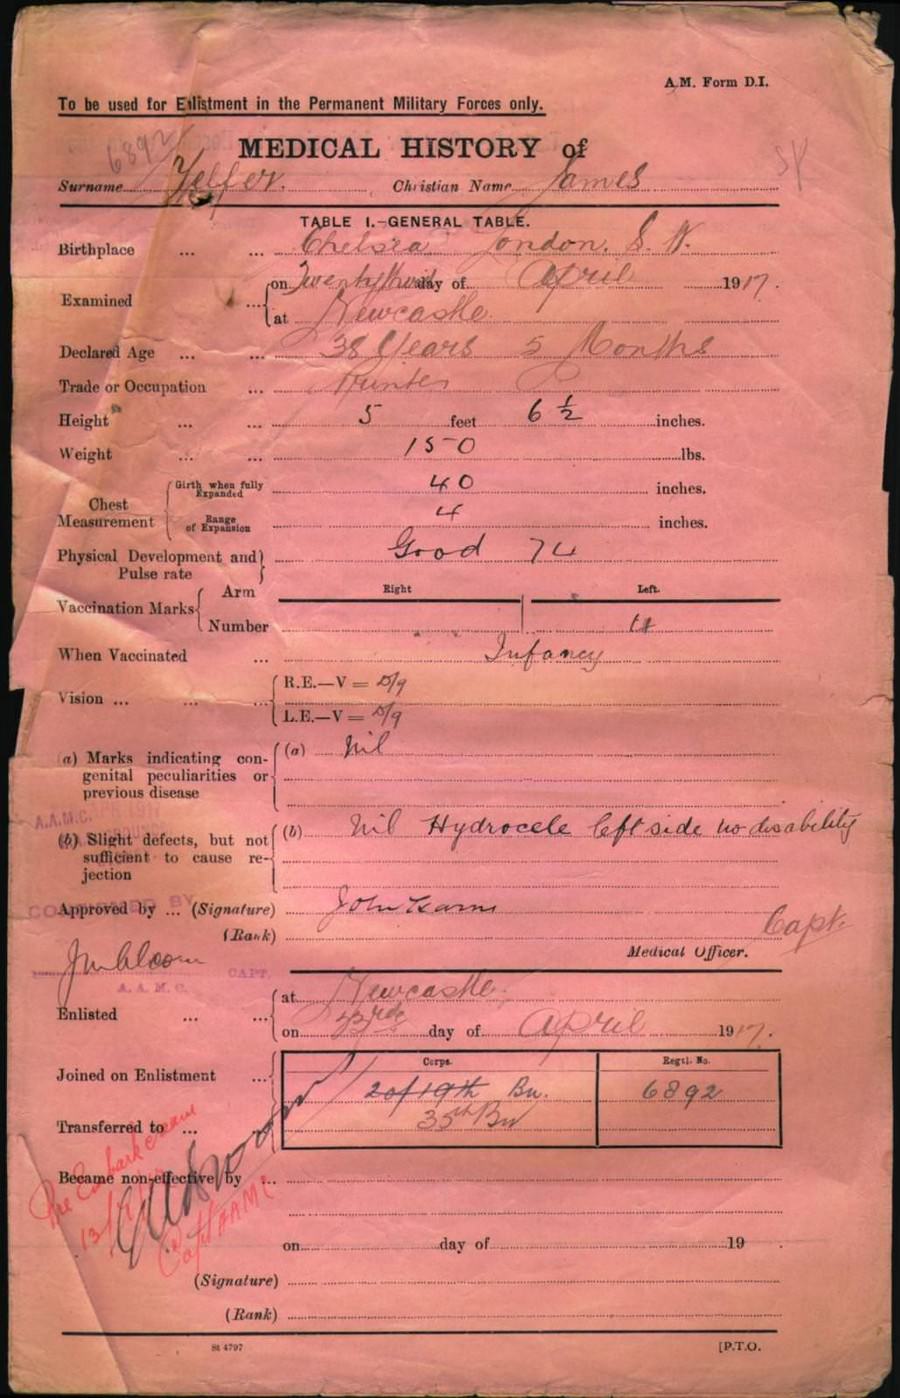 A.M. Form D.I.
To be used for Enlistment in the Permanent Military Forces only.
6892
MEDICAL HISTORY of
Surname Telfer. Christian Name James
TABLE I.—GENERAL TABLE.
Birthplace ... ... Chelsea London. S. W.
Examined ... on Twenty third day of April 1917.
at Newcastle
Declared Age ... ... 38 Years 5 Months
Trade or Occupation ...
Height ... ... 5 feet 6 ½ inches.
Weight ... ... 150 lbs.
Chest Measurement Girth when fully Expanded 40 inches.
Range of Expansion 4 inches.
Physical Development and Pulse rate Good 74
Vaccination Marks Arm Right Left.
Number
When Vaccinated ... Infancy
Vision ... ... ... R.E.—V =
L.E.—V =
(a) Marks indicating congenital peculiarities or previous disease (a) Nil
A.A.M.C.
(b) Slight defects, but not sufficient to cause rejection (b) Nil Hydrocele left side no disability
Approved by ... (Signature) John
(Rank) Capt.
Medical Officer.
CAPT.
A.A.M.C.
Enlisted ... ... at Newcastle.
on 23rd day of April 1917.
Corps. Regtl. No.
Joined on Enlistment ... 20/19th Bn. 6892
Transferred to ... 35th Bn
Became non-effective by ...
Capt AAMC
on day of 19 .
(Signature)
(Rank)
St 4797 [P.T.O.